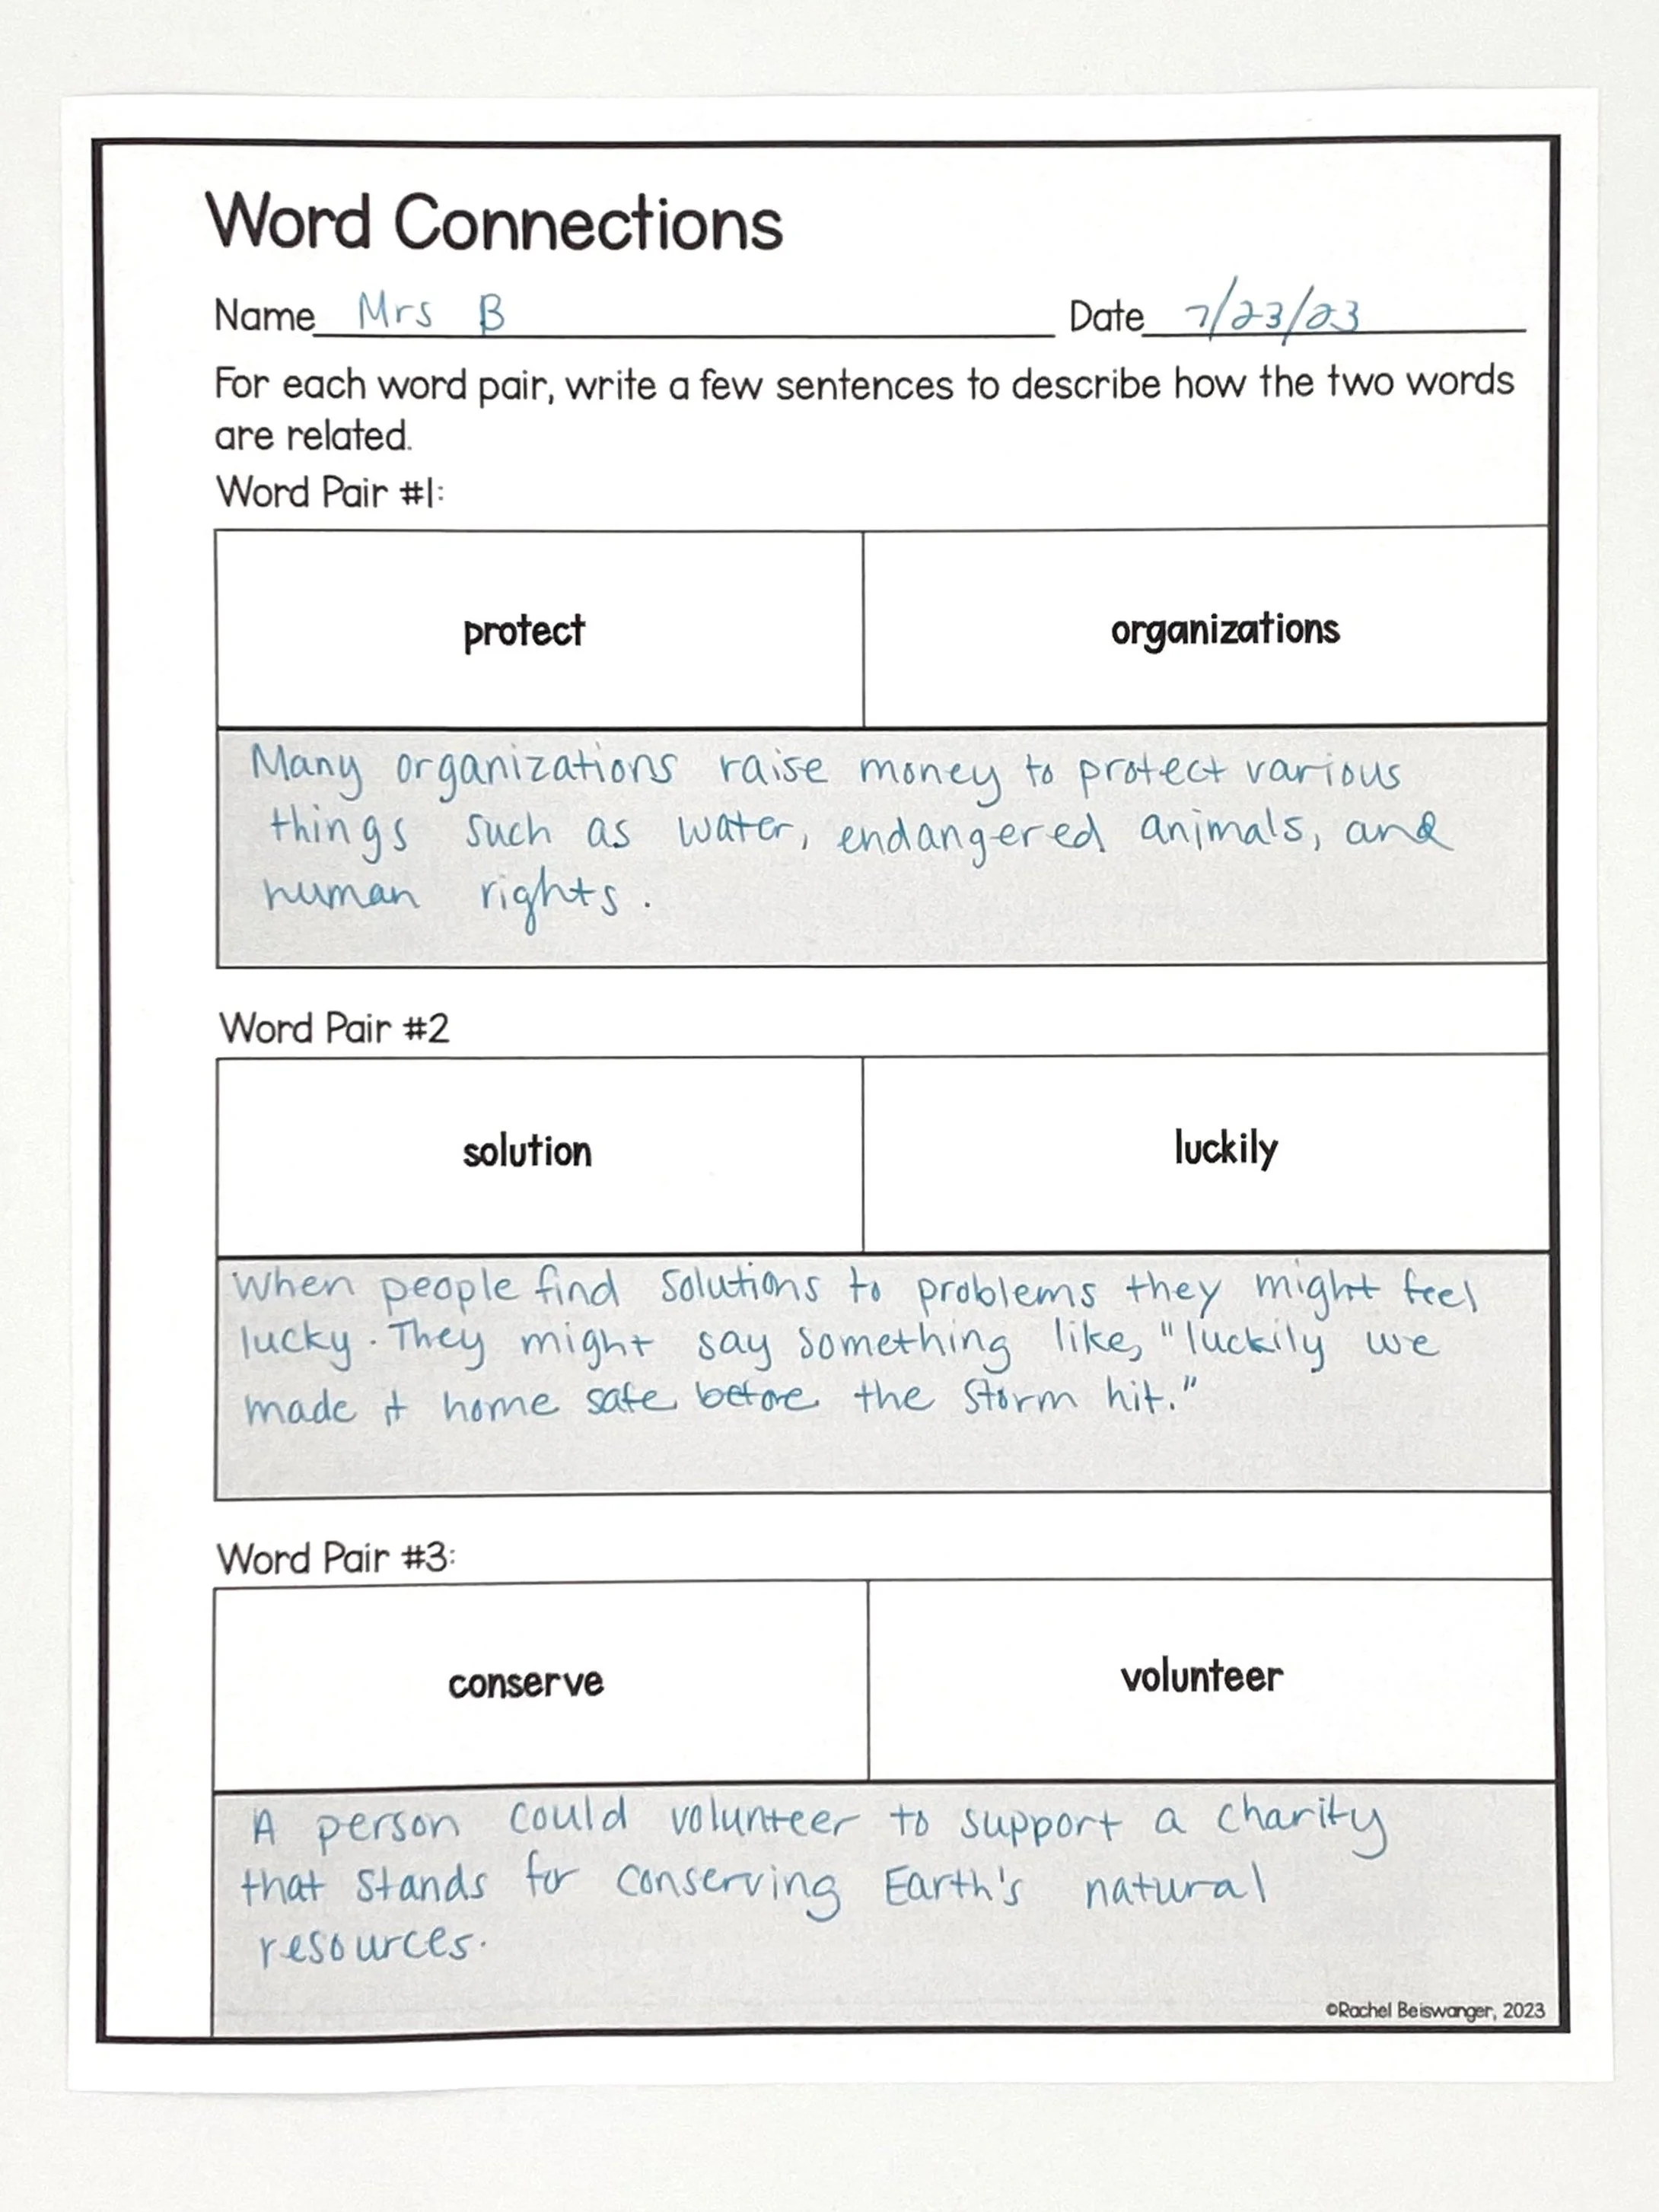 Word Connections
Name Mrs B Date 7/23/23
For each word pair, write a few sentences to describe how the two words
are related.
Word Pair #1:
protect organizations
Many organizations raise money to protect various
things such as water, endangered animals, and
human rights.
Word Pair #2
solution luckily
When people find solutions to problems they might feel
lucky. They might say something like, "luckily we
made it home safe before the storm hit."
Word Pair #3:
conserve volunteer
A person could volunteer to support a charity
that stands for conserving Earth's natural
resources.
©Rachel Beiswanger, 2023